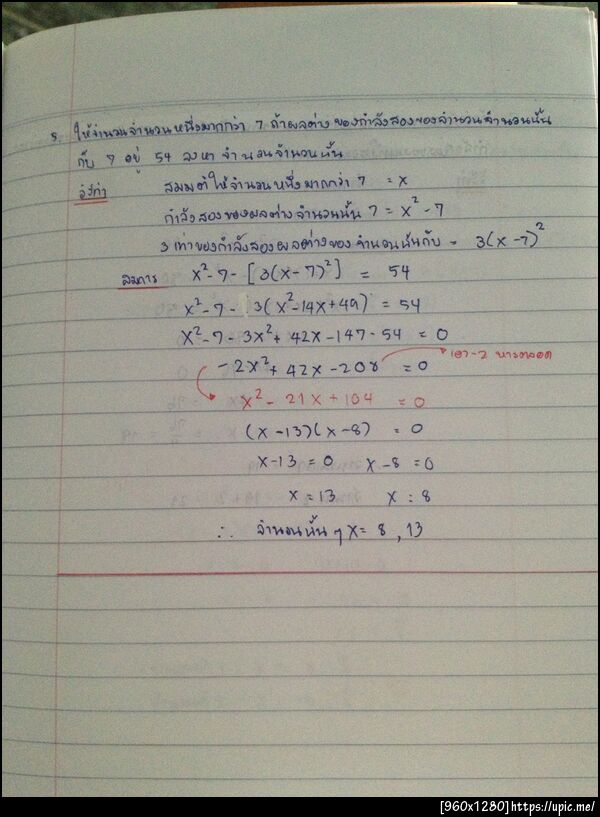 8. ให้จำนวนจำนวนหนึ่งมากกว่า 7 ถ้าผลต่างของกำลังสองของจำนวนจำนวนนั้น
กับ 7 อยู่ 54 จงหาจำนวนจำนวนนั้น
วิธีทำ สมมติให้จำนวนหนึ่งมากกว่า 7 = x
กำลังสองของผลต่างจำนวนนั้น 7 = x² - 7
3 เท่าของกำลังสองผลต่างของจำนวนนั้นกับ = 3(x - 7)²
สมการ x² - 7 - [3(x - 7)²] = 54
x² - 7 - 3(x² - 14x + 49) = 54
x² - 7 - 3x² + 42x - 147 - 54 = 0
-2x² + 42x - 208 = 0 เอา -2 หารตลอด
x² - 21x + 104 = 0
(x - 13)(x - 8) = 0
x - 13 = 0 x - 8 = 0
x = 13 x = 8
∴ จำนวนนั้น x = 8, 13
[960x1280]https://upic.me/